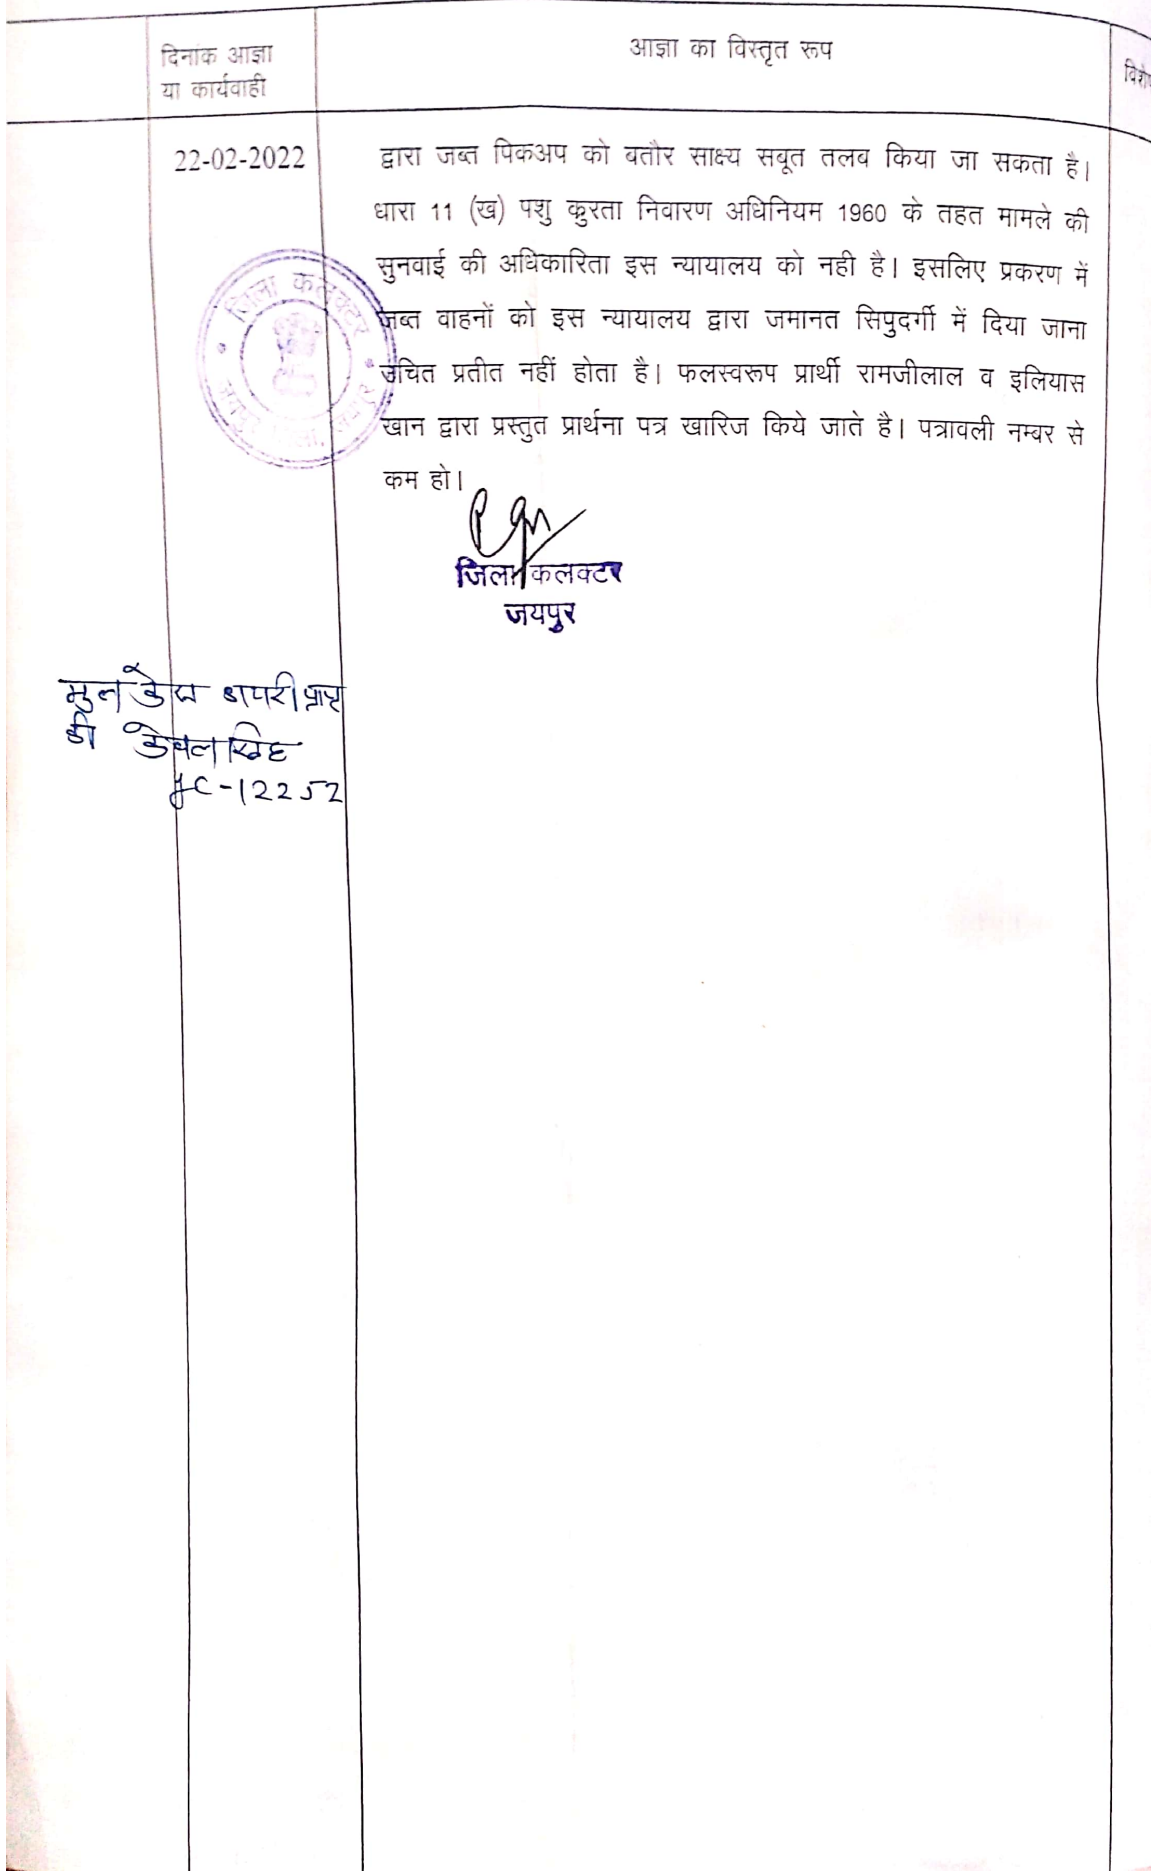 दिनांक आज्ञा
या कार्यवाही
आज्ञा का विस्तृत रूप
22-02-2022
द्वारा जब्त पिकअप को बतौर साक्ष्य सबूत तलब किया जा सकता है।
धारा 11 (ख) पशु क्रुरता निवारण अधिनियम 1960 के तहत मामले की
सुनवाई की अधिकारिता इस न्यायालय को नही है। इसलिए प्रकरण में
जब्त वाहनों को इस न्यायालय द्वारा जमानत सिपुदर्गी में दिया जाना
उचित प्रतीत नहीं होता है। फलस्वरूप प्रार्थी रामजीलाल व इलियास
खान द्वारा प्रस्तुत प्रार्थना पत्र खारिज किये जाते है। पत्रावली नम्बर से
कम हो।
जिला कलक्टर
जिला कलक्टर
जयपुर
मुल केस डायरी प्राप्त
की केवल सिंह
-12252